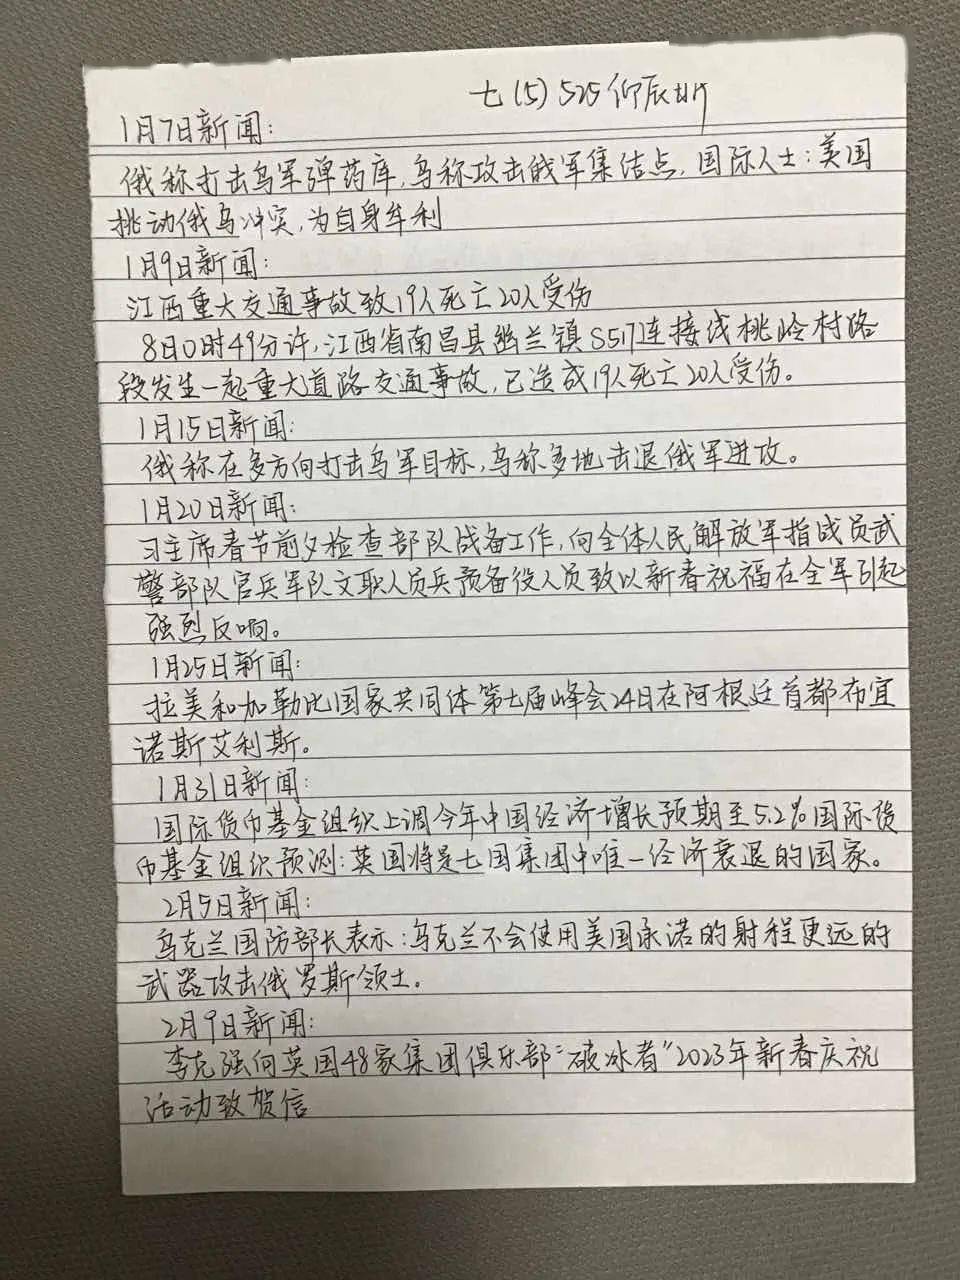 七(5)525仰辰昕
1月7日新闻:
俄称打击乌军弹药库,乌称攻击俄军集结点,国际人士:美国
挑动俄乌冲突,为自身牟利
1月9日新闻:
江西重大交通事故致19人死亡20人受伤
8日0时49分许,江西省南昌县幽兰镇S517连接线桃岭村路
段发生一起重大道路交通事故,已造成19人死亡20人受伤。
1月15日新闻:
俄称在多方向打击乌军目标,乌称多地击退俄军进攻。
1月20日新闻:
习主席春节前夕检查部队战备工作,向全体人民解放军指战员武
警部队官兵军队文职人员兵预备役人员致以新春祝福在全军引起
强烈反响。
1月25日新闻:
拉美和加勒比国家共同体第七届峰会24日在阿根廷首都布宜
诺斯艾利斯。
1月31日新闻:
国际货币基金组织上调今年中国经济增长预期至5.2%国际货
币基金组织预测:英国将是七国集团中唯一经济衰退的国家。
2月5日新闻:
乌克兰国防部长表示:乌克兰不会使用美国承诺的射程更远的
武器攻击俄罗斯领土。
2月9日新闻:
李克强向英国48家集团俱乐部“破冰者”2023年新春庆祝
活动致贺信